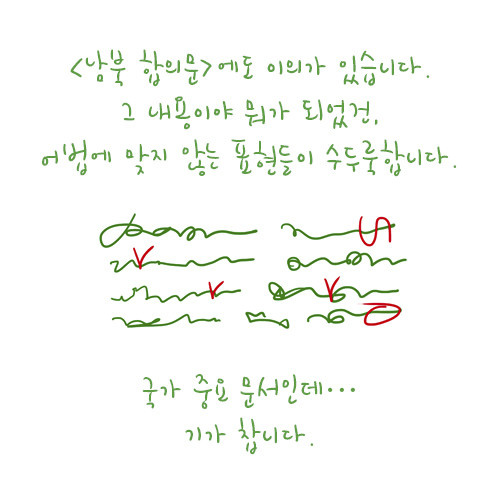 <남북 합의문>에도 이의가 있습니다.
그 내용이야 뭐가 되었건,
어법에 맞지 않는 표현들이 수두룩합니다.
국가 중요 문서인데···
기가 찹니다.